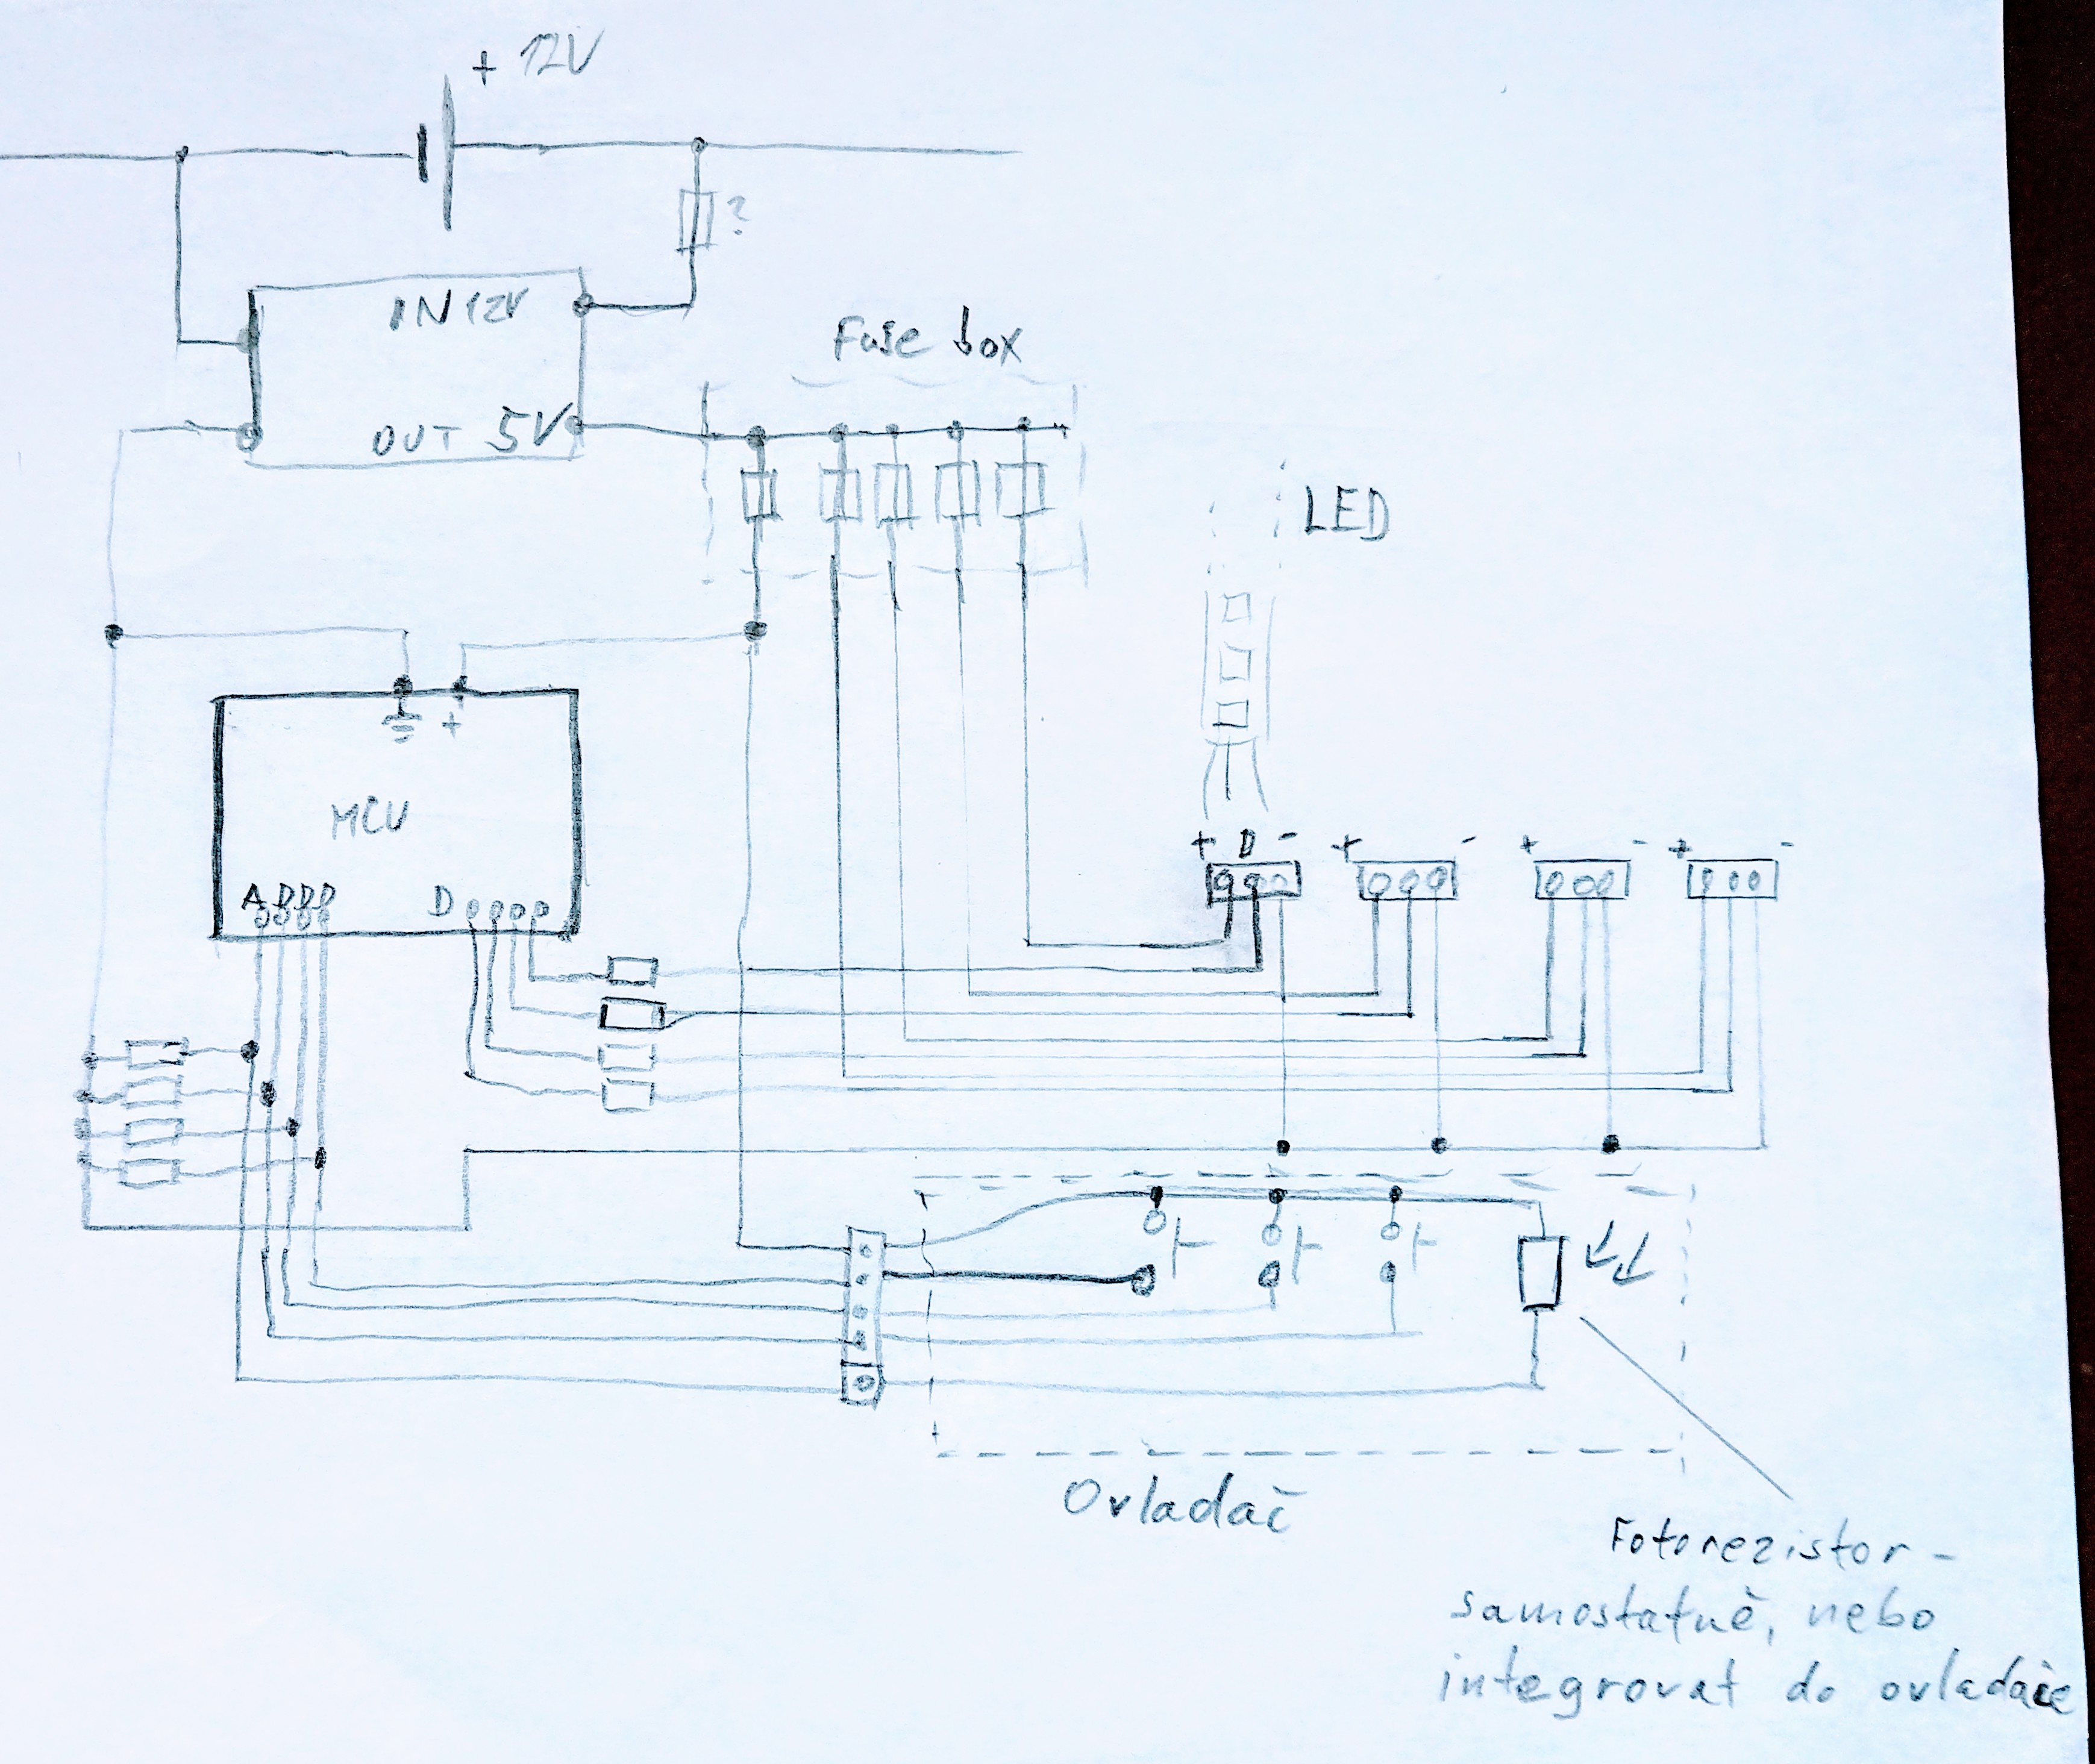 + 12V
?
IN 12V
Fuse box
OUT 5V
LED
+
MCU
+ D -
+ -
+ -
+ -
A D D D
D
Ovladač
Fotorezistor -
samostatně, nebo
integrovat do ovladače